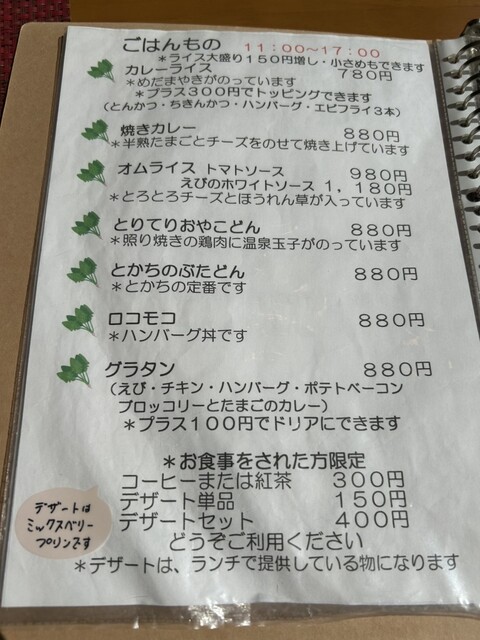 ごはんもの 11:00〜17:00
＊ライス大盛り150円増し・小さめもできます
カレーライス 780円
＊めだまやきがのっています
＊プラス300円でトッピングできます
（とんかつ・ちきんかつ・ハンバーグ・エビフライ3本）
焼きカレー 880円
＊半熟たまごとチーズをのせて焼き上げています
オムライス トマトソース 980円
えびのホワイトソース 1，180円
＊とろとろチーズとほうれん草が入っています
とりてりおやこどん 880円
＊照り焼きの鶏肉に温泉玉子がのっています
とかちのぶたどん 880円
＊とかちの定番です
ロコモコ 880円
＊ハンバーグ丼です
グラタン 880円
（えび・チキン・ハンバーグ・ポテトベーコン
ブロッコリーとたまごのカレー）
＊プラス100円でドリアにできます
＊お食事をされた方限定
コーヒーまたは紅茶 300円
デザート単品 150円
デザートセット 400円
どうぞご利用ください
＊デザートは、ランチで提供している物になります
デザートは
ミックスベリー
プリンです